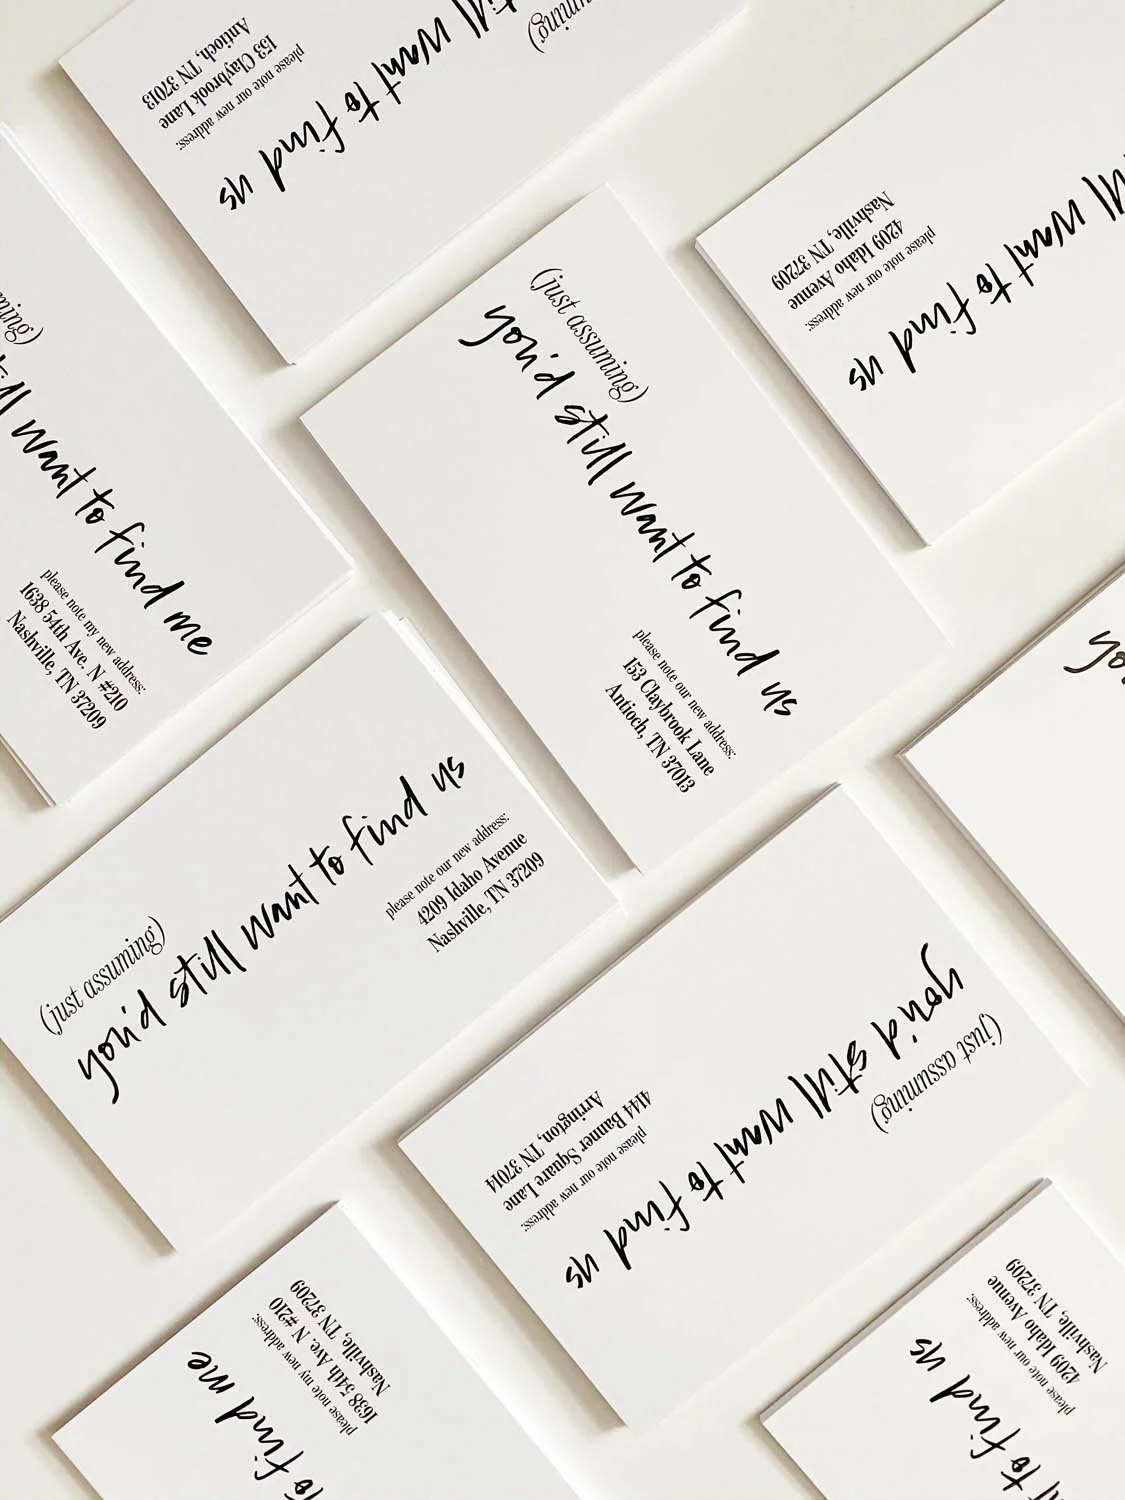 (just assuming)
still want to find us
please note our new address:
153 Claybrook Lane
Antioch, TN 37013
want to find us
please note our new address:
4209 Idaho Avenue
Nashville, TN 37209
still want to find me
please note my new address:
1638 54th Ave. N #210
Nashville, TN 37209
(just assuming)
you'd still want to find us
please note our new address:
153 Claybrook Lane
Antioch, TN 37013
(just assuming)
you'd still want to find us
please note our new address:
4209 Idaho Avenue
Nashville, TN 37209
(just assuming)
you'd still want to find us
please note our new address:
4144 Banner Square Lane
Arrington, TN 37014
to find me
please note my new address:
1638 54th Ave. N #210
Nashville, TN 37209
to find us
please note our new address:
4209 Idaho Avenue
Nashville, TN 37209